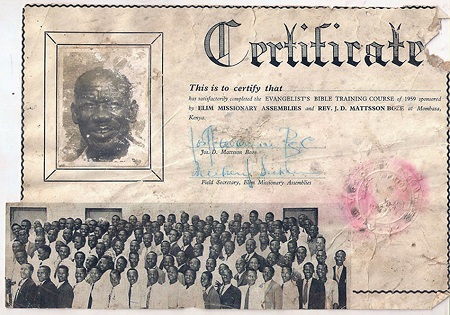 Certificate
This is to certify that
has satisfactorily completed the EVANGELIST'S BIBLE TRAINING COURSE of 1959 sponsored
by ELIM MISSIONARY ASSEMBLIES and REV. J. D. MATTSSON BOZE at Mombasa,
Kenya.
Jos. D. Mattsson Boze
Field Secretary, Elim Missionary Assemblies